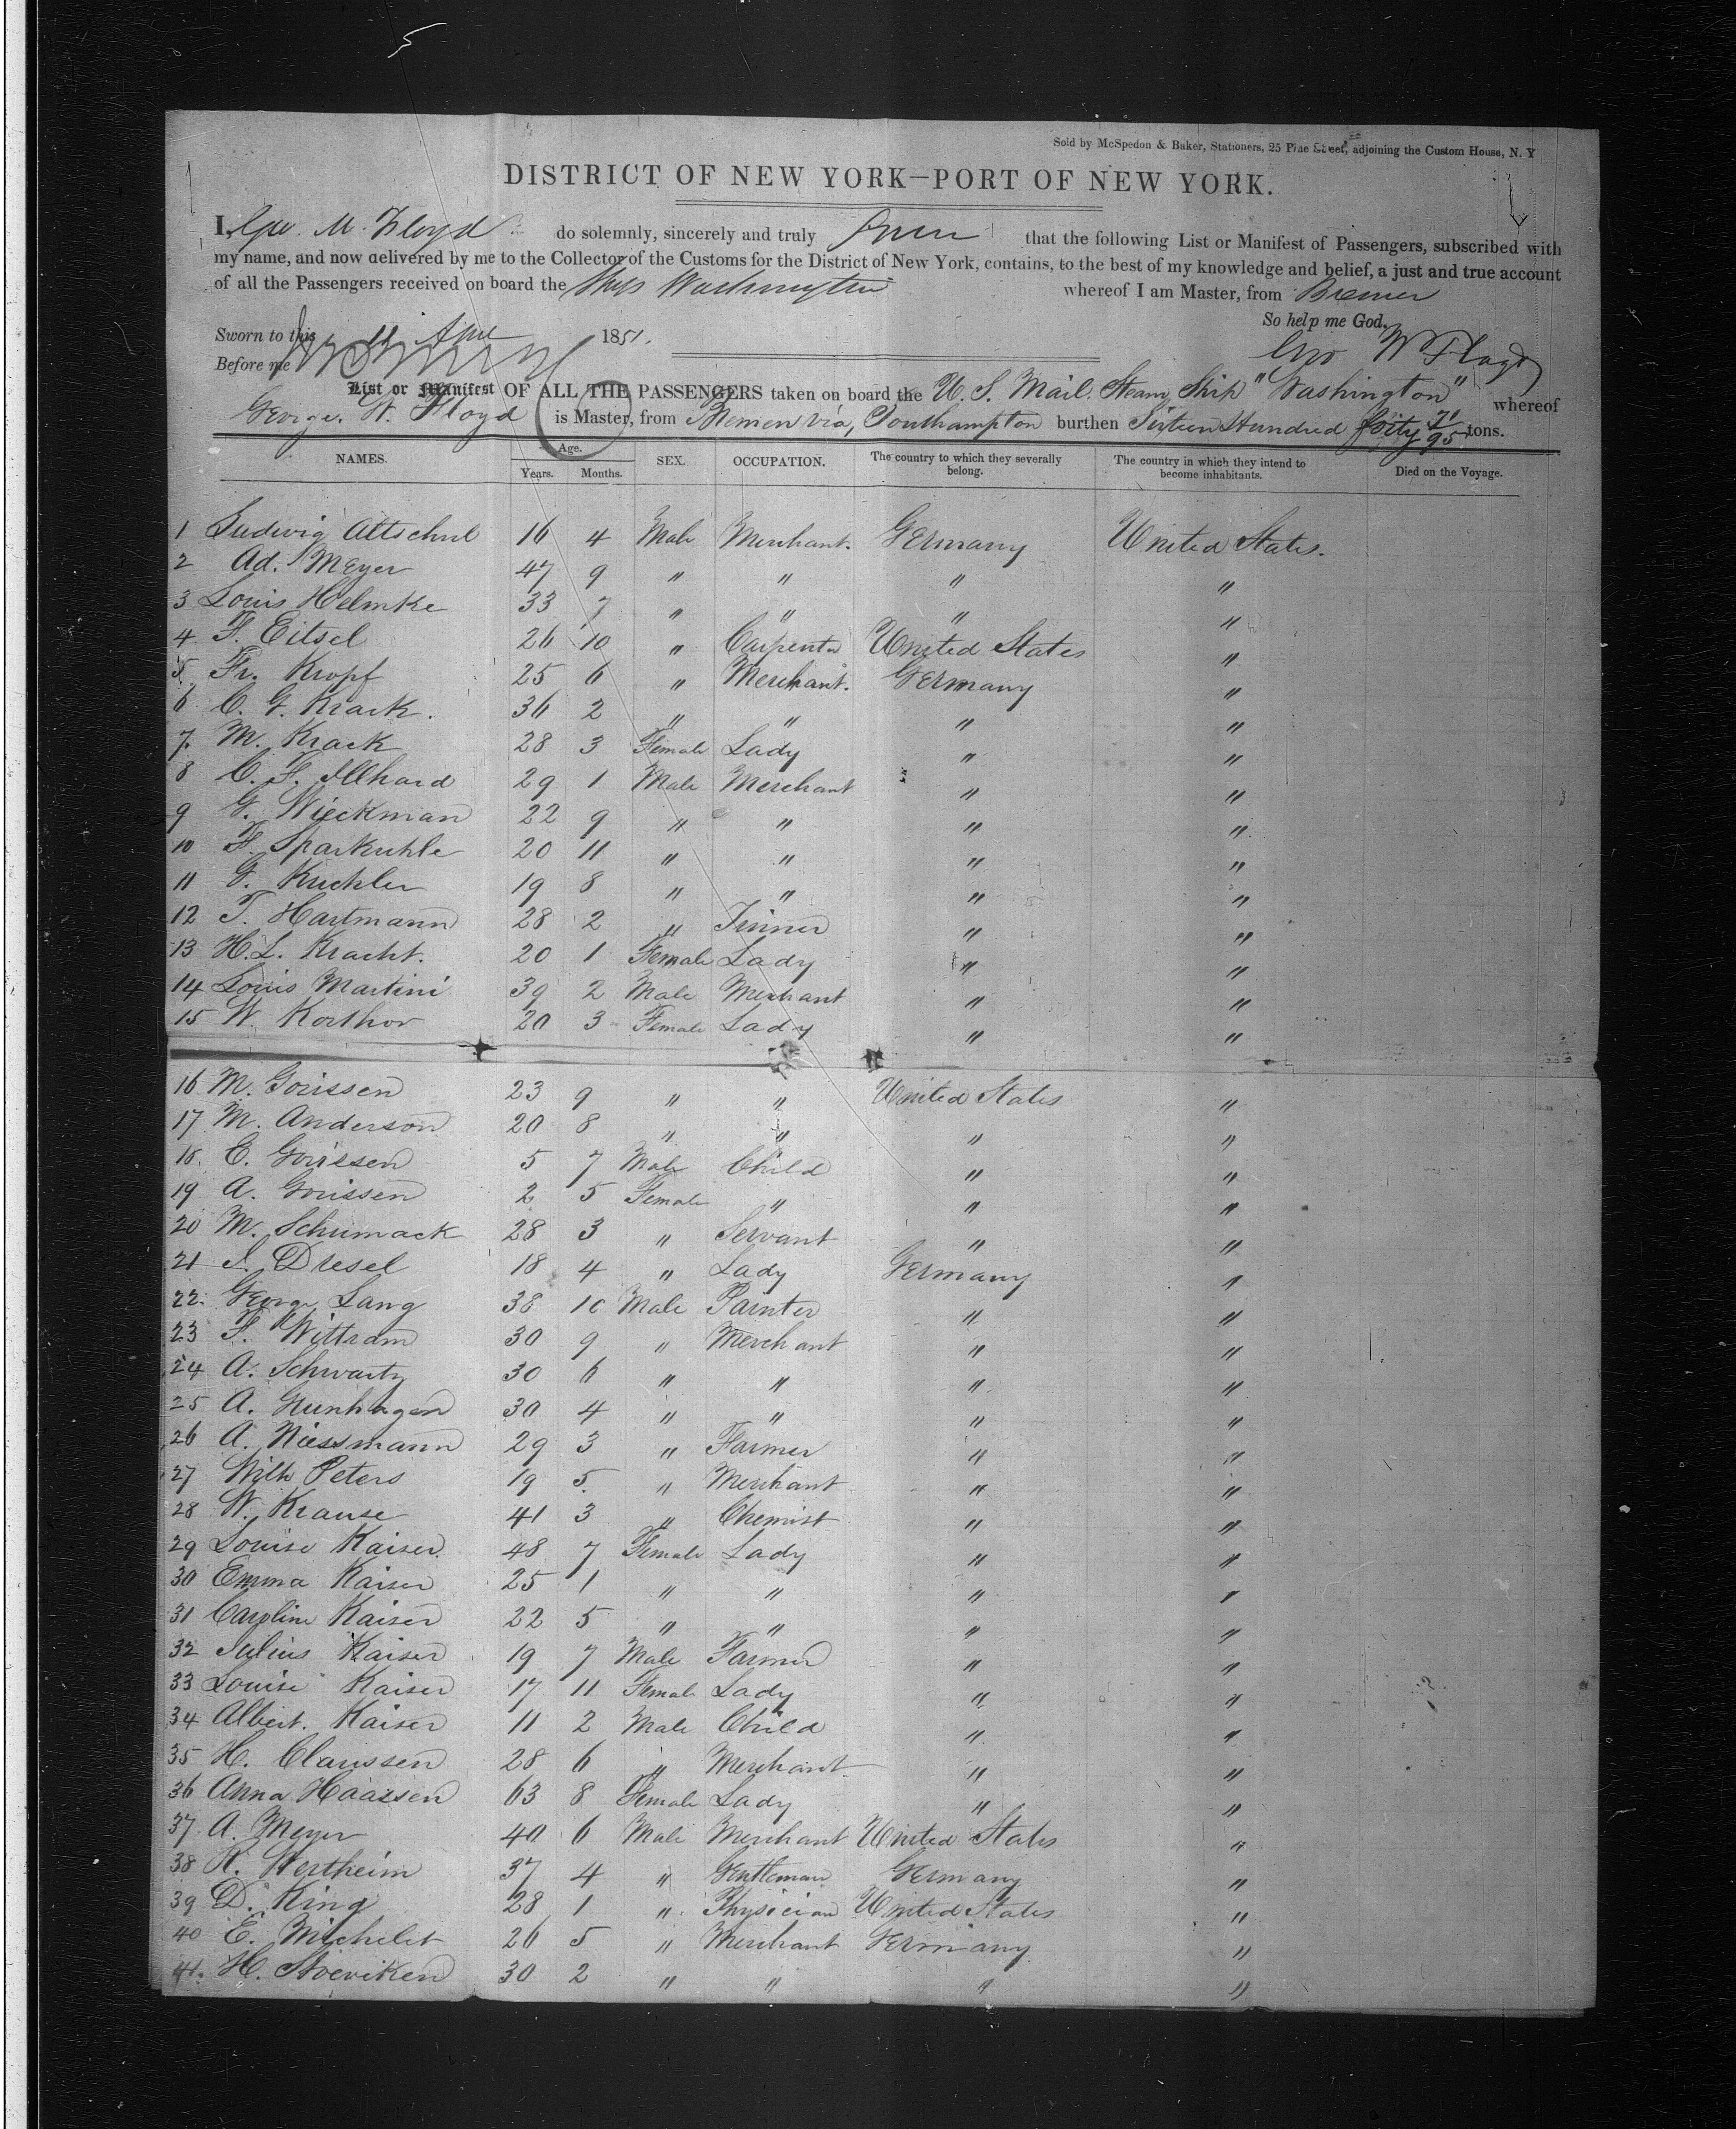 Sold by McSpedon & Baker, Stationers, 25 Pine Street, adjoining the Custom House, N. Y
DISTRICT OF NEW YORK—PORT OF NEW YORK.
I, Geo. W. Floyd do solemnly, sincerely and truly swear that the following List or Manifest of Passengers, subscribed with
my name, and now delivered by me to the Collector of the Customs for the District of New York, contains, to the best of my knowledge and belief, a just and true account
of all the Passengers received on board the Ship Washington whereof I am Master, from Bremen
So help me God,
Sworn to this 11 Apl 1851.
Geo W Floyd
Before me
List or Manifest OF ALL THE PASSENGERS taken on board the U. S. Mail. Steam Ship "Washington" whereof
George. W. Floyd is Master, from Bremen via, Southampton burthen Sixteen Hundred forty 71/95 tons.
NAMES. Age. Years. Months. SEX. OCCUPATION. The country to which they severally belong. The country in which they intend to become inhabitants. Died on the Voyage.
1 Ludwig Altschul 16 4 Male Merchant. Germany United States.
2 Ad. Meyer 47 9 " " " "
3 Louis Helmke 33 7 " " " "
4 F. Eitsel 26 10 " Carpenter United States "
5 Fr. Kropf 25 6 " Merchant. Germany "
6 C. G. Krack. 36 2 " " " "
7. M. Krack 28 3 Female Lady " "
8 C. F. Illhard 29 1 Male Merchant " "
9 G. Wieckman 22 9 " " " "
10 F. Sparkuhle 20 11 " " " "
11 G. Kuchler 19 8 " " " "
12 T. Hartmann 28 2 " Tinner " "
13 H. L. Kracht. 20 1 Female Lady " "
14 Louis Martini 39 2 Male Merchant " "
15 W. Korthor 20 3 Female Lady " "
16 M. Gorissen 23 9 " " United States "
17 M. Anderson 20 8 " " " "
18. E. Gorissen 5 7 Male Child " "
19 A. Gorissen 2 5 Female " " "
20 M. Schumack 28 3 " Servant " "
21 S. Dresel 18 4 " Lady Germany "
22. George Lang 38 10 Male Painter " "
23 F. Wittram 30 9 " Merchant " "
24 A. Schwartz 30 6 " " " "
25 A. Grunhagen 30 4 " " " "
26 A. Niessmann 29 3 " Farmer " "
27 Wilh Peters 19 5. " Merchant " "
28 W. Krause 41 3 " Chemist " "
29 Louise Kaiser 48 7 Female Lady " "
30 Emma Kaiser 25 1 " " " "
31 Caroline Kaiser 22 5 " " " "
32 Julius Kaiser 19 7 Male Farmer " "
33 Louise Kaiser 17 11 Female Lady " "
34 Albert. Kaiser 11 2 Male Child " "
35 H. Claussen 28 6 " Merchant " "
36 Anna Haassen 63 8 Female Lady " "
37 A. Meyer 40 6 Male Merchant United States "
38 R. Wertheim 37 4 " Gentleman Germany "
39 D. King 28 1 " Physician United States "
40 E. Michelet 26 5 " Merchant Germany "
41. H. Stoeviken 30 2 " " " "